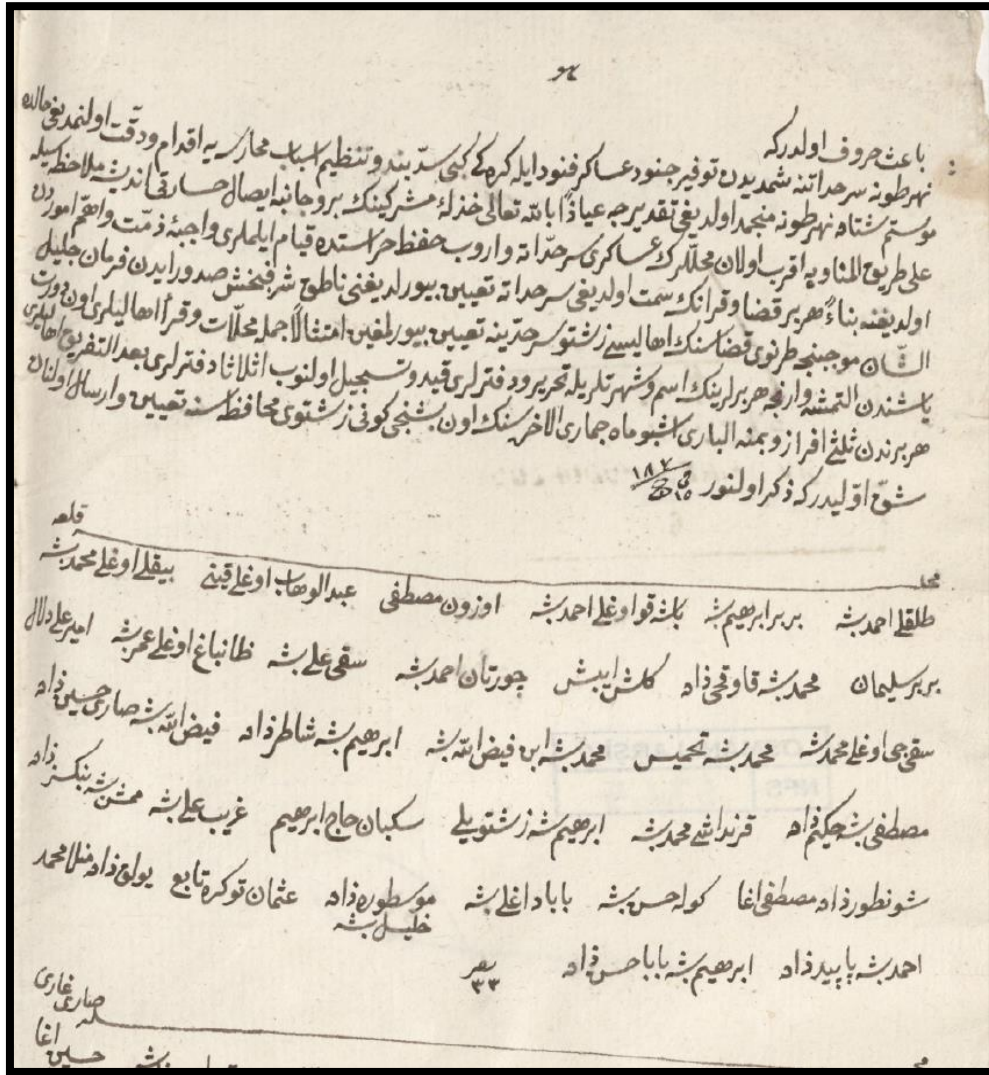 هو
باعث حروف اولدركه
نهر طونه سرحداتنه شمديدن توفير جنود و عساكر قنود ايله كره كبى سدّ بند و تنظيم اسباب محارسه يه اقدام و دقّت اولنمديغى حالده
موسم شتاده نهر طونه منجمد اولديغى تقديرجه عياذاً بالله تعالى خذلۀ مشركينك برو جانبه ايصال خسارتى انديشه ملاحظه سيله
على طريق المناوبه اقرب اولان محللرك عساكرى سرحداته واروب حفظ و حراستده قيام ايلملرى واجبۀ ذمّت و اهمّ اموردن
اولديغنه بناءً هر بر قضا و قرانك سمت اولديغى سرحداته تعيين بيورلديغنى ناطق شرفبخش صدور ايدن فرمان جليل
الشّان موجبنجه طرنوى قضاسنك اهاليسى زشتوى سرحدّينه تعيين بيورلمغين امتثالاً جمله محلّات و قرأ اهاليلرى اون درت
ياشندن التمشه وارنجه هر برلرينك اسم و شهرتلريله تحرير و دفترلرى قيد و تسجيل اولنوب اثلاثا دفترلرى بعد التفريق اهاليلرى
هر برندن ثلثى افراز و بمنه البارى اشبو ماه جمادى الاخرسنك اون بشنجى كونى زشتوى محافظه سنه تعيين و ارسال اولنان
شقّ اوّليدركه ذكر اولنور ١٥ ١٨٧
محله قلعه
طلقلى احمد بشه بربر ابرهيم بشه باش قو اوغلى احمد بشه اوزون مصطفى عبد الوهاب اوغلى قينى بيقلى اوغلى محمد بشه
بربر سليمان محمد بشه قاوقجى زاده كلش ايبش چورتان احمد بشه سقى على بشه طانباغ اوغلى عمر بشه امير على دلال
سقى جى اوغلى محمد بشه محمد بشه تحميس محمد بشه ابن فيض الله بشه ابرهيم بشه شاطرزاده فيض الله بشه صارى حسين زاده
مصطفى بشه جيكنم زاده قرنداشى محمد بشه ابرهيم بشه زشتويلى سكبان حاج ابرهيم غريب على بشه ممش بشه بنكسز زاده
شونطور زاده مصطفى اغا كوله حسن بشه بابا داغلى بشه موسطوره زاده خليل بشه عثمان توكره تابع يولق زاده منلا محمد
احمد بشه پاپيد زاده ابرهيم بشه بابا حسن زاده نفر ٣٣
صارى غازى
حسين اغا